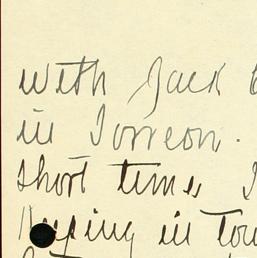 with Jack
in Torreon.
short time, I
Keeping in tou